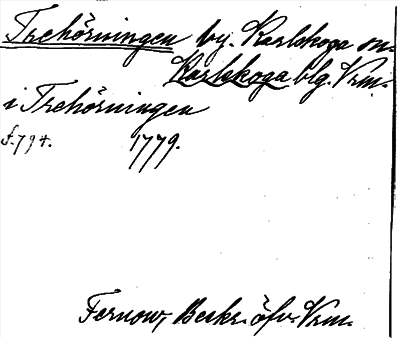 Trehörningen by. Karlskoga sn.
Karlskoga blg. Vrm.
i Trehörningen
f. 794. 1779.
Fernow, Beskr. öfv. Vrm.